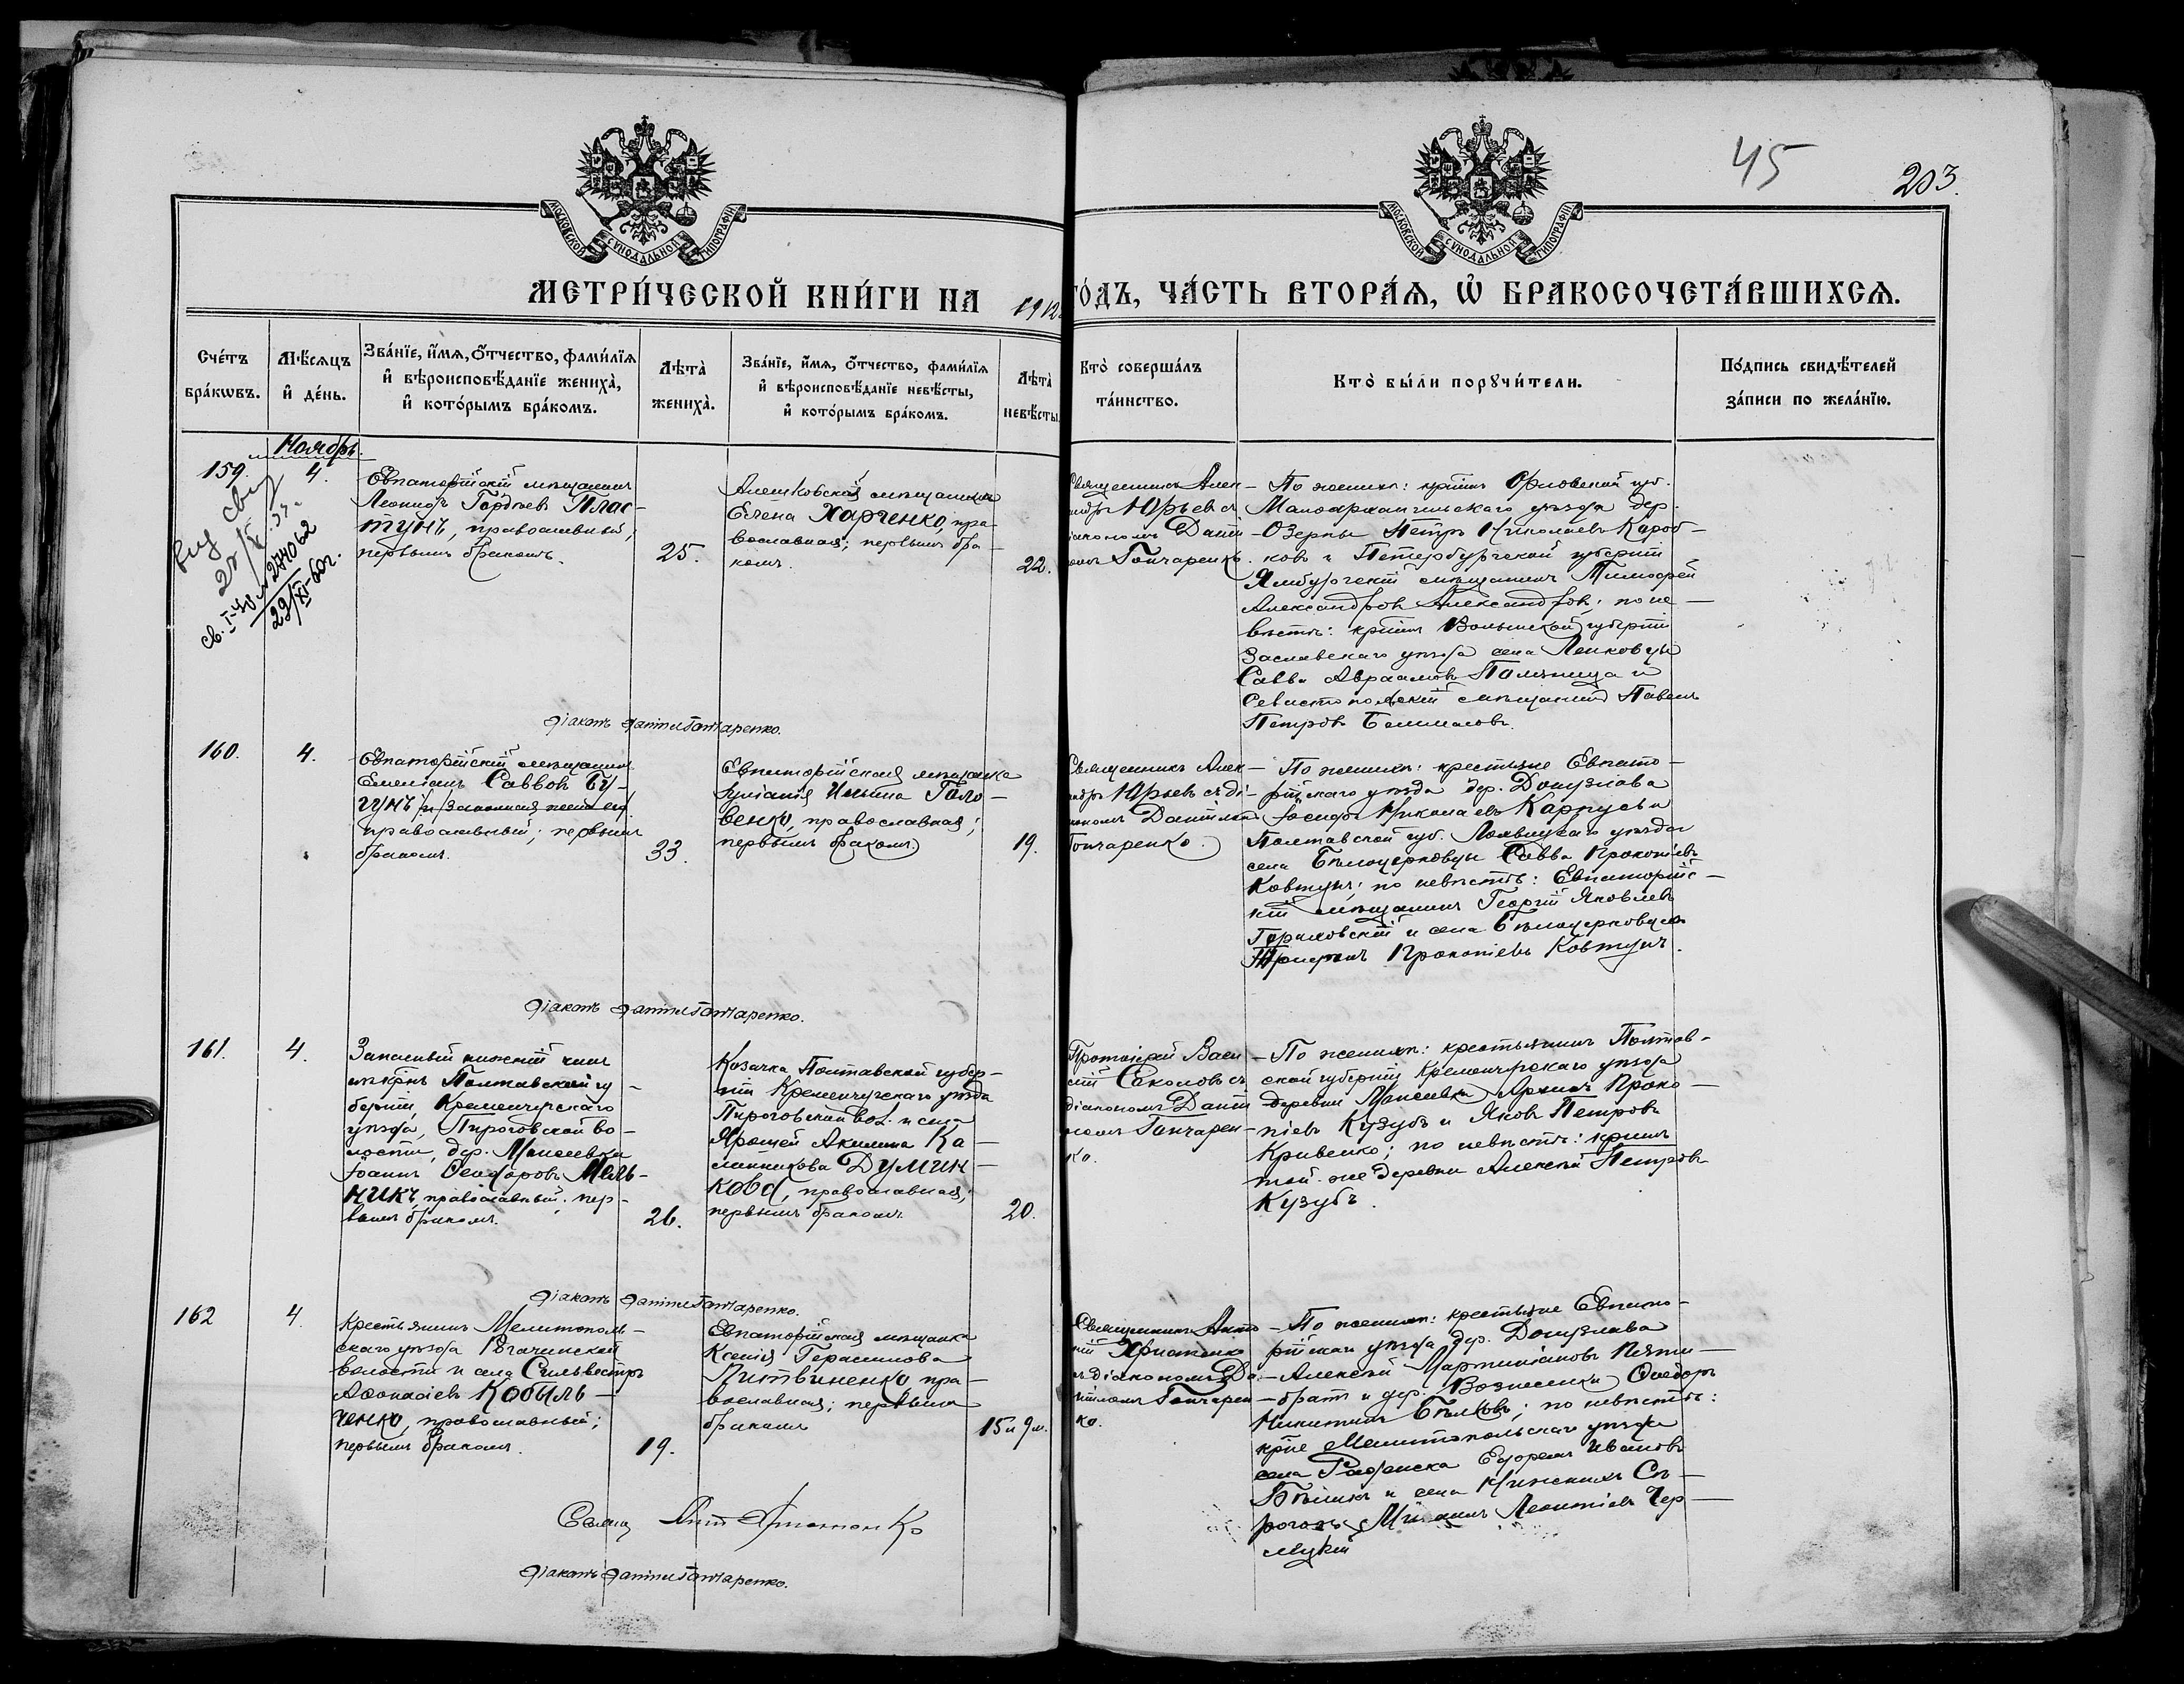 45
203.
МОСКОВСКОЙ СѴНОДАЛЬНОЙ ТИПОГРАФІИ
МОСКОВСКОЙ СѴНОДАЛЬНОЙ ТИПОГРАФІИ
МЕТРИ́ЧЕСКОЙ КНИ́ГИ НА 1912
ГО́ДЪ, ЧА́СТЬ ВТОРА́Ѧ, Ѽ БРАКОСОЧЕТА́ВШИХСѦ.
Сче́тъ бра́кѡвъ.
Мѣ́сяцъ и҆ де́нь.
Зва́нїе, и҆́мя, ѻ҆́тчество, фами́лїя
и҆ вѣроисповѣ́данїе жениха̀,
и҆ кото́рымъ бра́комъ.
Лѣта̀
жениха̀.
Зва́нїе, и҆́мя, ѻ҆́тчество, фами́лїя
и҆ вѣроисповѣ́данїе невѣ́сты,
и҆ кото́рымъ бра́комъ.
Лѣта̀
невѣ́сты
Кто̀ соверша́лъ
та́инство.
Кто̀ бы́ли порꙋчи́тели.
По́дпись свидѣ́телей
за́писи по жела́нїю.
Ноябрь.
159.
4.
Евпаторійскій мѣщанинъ
Леонидъ Гордѣевъ Плас-
тунъ, православный,
первымъ бракомъ.
25.
Алешковская мѣщанка
Елена Харченко, пра-
вославная; первымъ бра-
комъ.
22.
Священникъ Алек-
андръ Юрьевъ съ
діакономъ Дані-
ломъ Гончаренкъ.
По жениху: кр-нинъ Орловской губ.
Малоархангельскаго уѣзда дер.
Озерны Петръ Николаевъ Короб-
ковъ и Петербургской губерніи
Ямбургскій мѣщанинъ Тимофей
Александровъ Александровъ; по не-
вѣстѣ: кр-нинъ Волынской губерніи
Заславскаго уѣзда села Ленковцы
Савва Авраамовъ Паляница и
Севастопольскій мѣщанинъ Павелъ
Петровъ
Діаконъ Даніилъ Гончаренко.
160.
4.
Евпаторійскій мѣщанинъ
Емеліанъ Саввовъ Бу-
гунъ
православный; первымъ
бракомъ.
33.
Евпаторійская мѣщанка
Іуліанія Ильина Голо-
венко, православная;
первымъ бракомъ.
19.
Священникъ Алек-
андръ Юрьевъ съ ді-
акономъ Даніиломъ
Гончаренко.
По жениху: крестьяне Евпато-
рійскаго уѣзда дер. Донузлава
Іосифъ Николаевъ Карпусь и
Полтавской губ. уѣзда
села Бѣлоцерковцы Савва Прокопіевъ
Ковтунъ; по невѣстѣ: Евпаторійс-
кій мѣщанинъ Георгій Яковлевъ
и села Бѣлоцерковцы
Прокопіевъ Ковтунъ.
Діаконъ Даніилъ Гончаренко.
161.
4.
Запасный нижній чинъ
Полтавской гу-
берніи, Кременчугскаго
уѣзда, Пироговской во-
лости, дер. Моисеевки
Іоаннъ Ѳеодоровъ Мель-
никъ, православный; пер-
вымъ бракомъ.
26.
Козачка Полтавской губер-
ніи Кременчугскаго уѣзда
Пироговской вол. и села
Ярошей Акилина Ка-
линникова Думин-
кова, православная;
первымъ бракомъ.
20.
Протоіерей Васи-
лій Соколовъ съ
діакономъ Даніи-
ломъ Гончарен-
ко.
По жениху: крестьянинъ Полтав-
ской губерніи Кременчугскаго уѣзда
деревни Моисеевки Архипъ Проко-
піевъ Кузубъ и Яковъ Петровъ
Кривенко; по невѣстѣ: кр-нинъ
той-же деревни Алексѣй Петровъ
Кузубъ.
Діаконъ Даніилъ Гончаренко.
162
4.
Крестьянинъ Мелитополь-
скаго уѣзда Рогачинской
волости и села Сильвестръ
Аѳанасіевъ Кобыль-
ченко, православный;
первымъ бракомъ.
19.
Евпаторійская мѣщанка
Ксенія Герасимова
Литвиненко пра-
вославная; первымъ
бракомъ
15 и 9 м.
Священникъ Анто-
ній Христенко
съ діакономъ Да-
ніиломъ Гончарен-
ко.
По жениху: крестьяне Евпато-
рійскаго уѣзда дер. Донузлава
Алексѣй Мартиніановъ Пяти-
братъ и дер. Вознесенки Ѳеодоръ
Никитинъ Бѣлковъ; по невѣстѣ:
кр-не Мелитопольскаго уѣзда
села Ефремъ Ивановъ
и села Нижнихъ Сѣ-
рогозъ Леонтіевъ Чер-
Свящ. Ант. Христенко
Діаконъ Даніилъ Гончаренко.